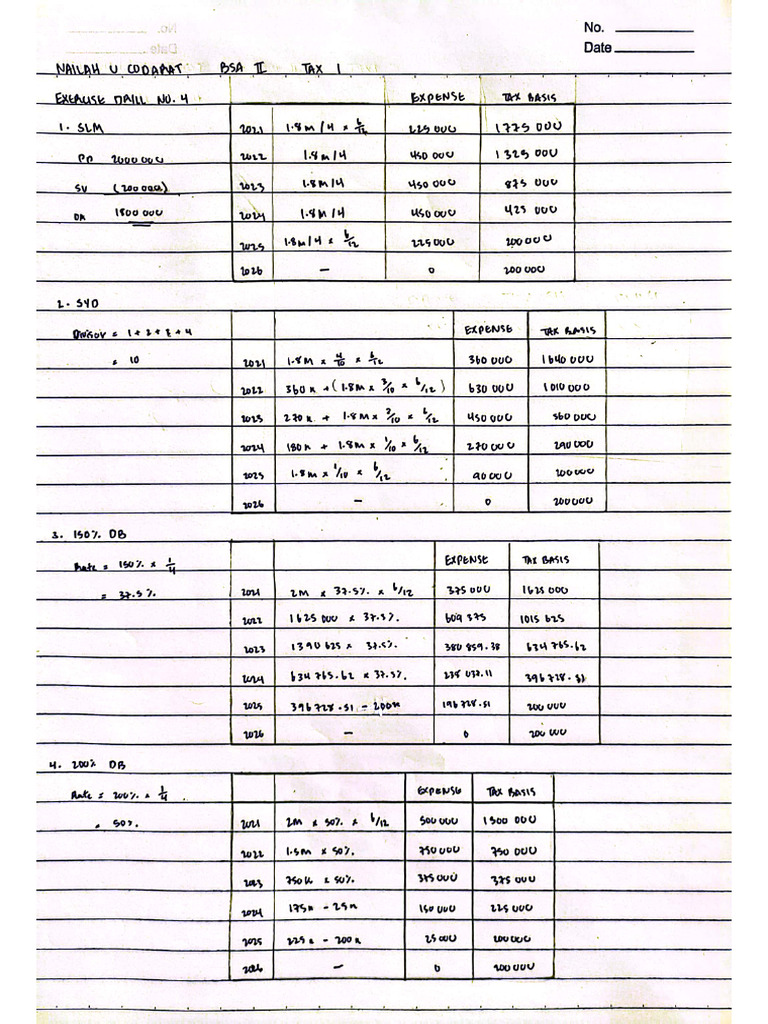 No.
Date
NAILAH U CODARAT BSA II TAX 1
EXERCISE DRILL NO. 4 EXPENSE TAX BASIS
1. SLM 2021 1.8M/4 x 6/12 225 000 1 775 000
PP 2000 000 2022 1.8M/4 450 000 1 325 000
SV (200 000) 2023 1.8M/4 450 000 875 000
DA 1800 000 2024 1.8M/4 450 000 425 000
2025 1.8M/4 x 6/12 225 000 200 000
2026 — 0 200 000
2. SYD
Divisor = 1 + 2 + 3 + 4 EXPENSE TAX BASIS
= 10 2021 1.8M x 4/10 x 6/12 360 000 1640 000
2022 360 K + (1.8M x 3/10 x 6/12) 630 000 1 010 000
2023 270 K + 1.8M x 2/10 x 6/12 450 000 560 000
2024 180 K + 1.8M x 1/10 x 6/12 270 000 290 000
2025 1.8M x 1/10 x 6/12 90 000 200 000
2026 — 0 200 000
3. 150% DB
Rate = 150% x 1/4 EXPENSE TAX BASIS
= 37.5% 2021 2M x 37.5% x 6/12 375 000 1625 000
2022 1 625 000 x 37.5% 609 375 1015 625
2023 1 390 625 x 37.5% 380 859.38 634 765.62
2024 634 765.62 x 37.5% 238 037.11 396 728.51
2025 396 728.51 - 200K 196 728.51 200 000
2026 — 0 200 000
4. 200% DB
Rate = 200% x 1/4 EXPENSE TAX BASIS
= 50% 2021 2M x 50% x 6/12 500 000 1 500 000
2022 1.5M x 50% 750 000 750 000
2023 750K x 50% 375 000 375 000
2024 175K - 25K 150 000 225 000
2025 225 K - 200 K 25 000 200 000
2026 — 0 200 000